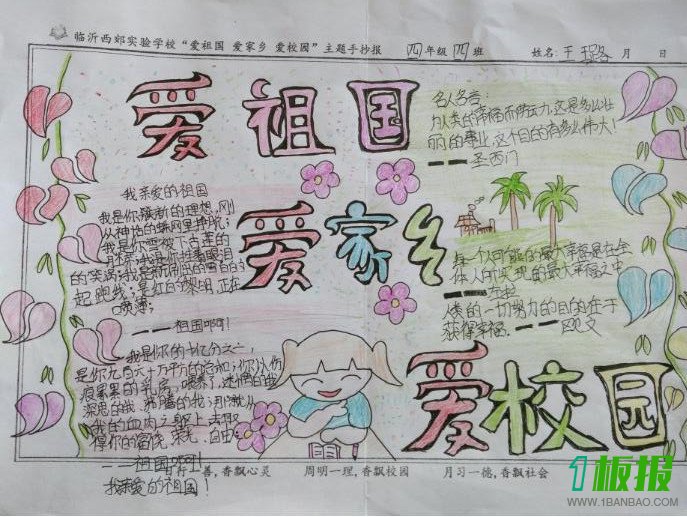 临沂西郊实验学校“爱祖国 爱家乡 爱校园”主题手抄报 四年级四班 姓名:王 月 日
爱祖国
名人名言:
为人类的幸福而劳动,这是多么壮
丽的事业,这个目的有多么伟大!
——圣西门
我亲爱的祖国
我是你簇新的理想,刚
从神话的蛛网里挣脱;
我是你雪被下古莲的
胚芽;我是你挂着眼泪
的笑涡;我是新刷出的雪白的
起跑线;是绯红的黎明,正在
喷薄;
——祖国啊!
爱家乡
每个人可能的最大幸福是在全
体人所实现的最大幸福之中
——左拉
人类的一切努力的目的在于
获得幸福。——欧文
我是你的十亿分之一,
是你九百六十万平方的总和;你以伤
痕累累的乳房,喂养了,迷惘的我
深思的我,沸腾的我;那就从
我的血肉之躯上,去取
得你的富饶,荣光,自由
——祖国啊!
我亲爱的祖国!
爱校园
日行一善,香飘心灵 周明一理,香飘校园 月习一德,香飘社会
1板报
WWW.1BANBAO.COM